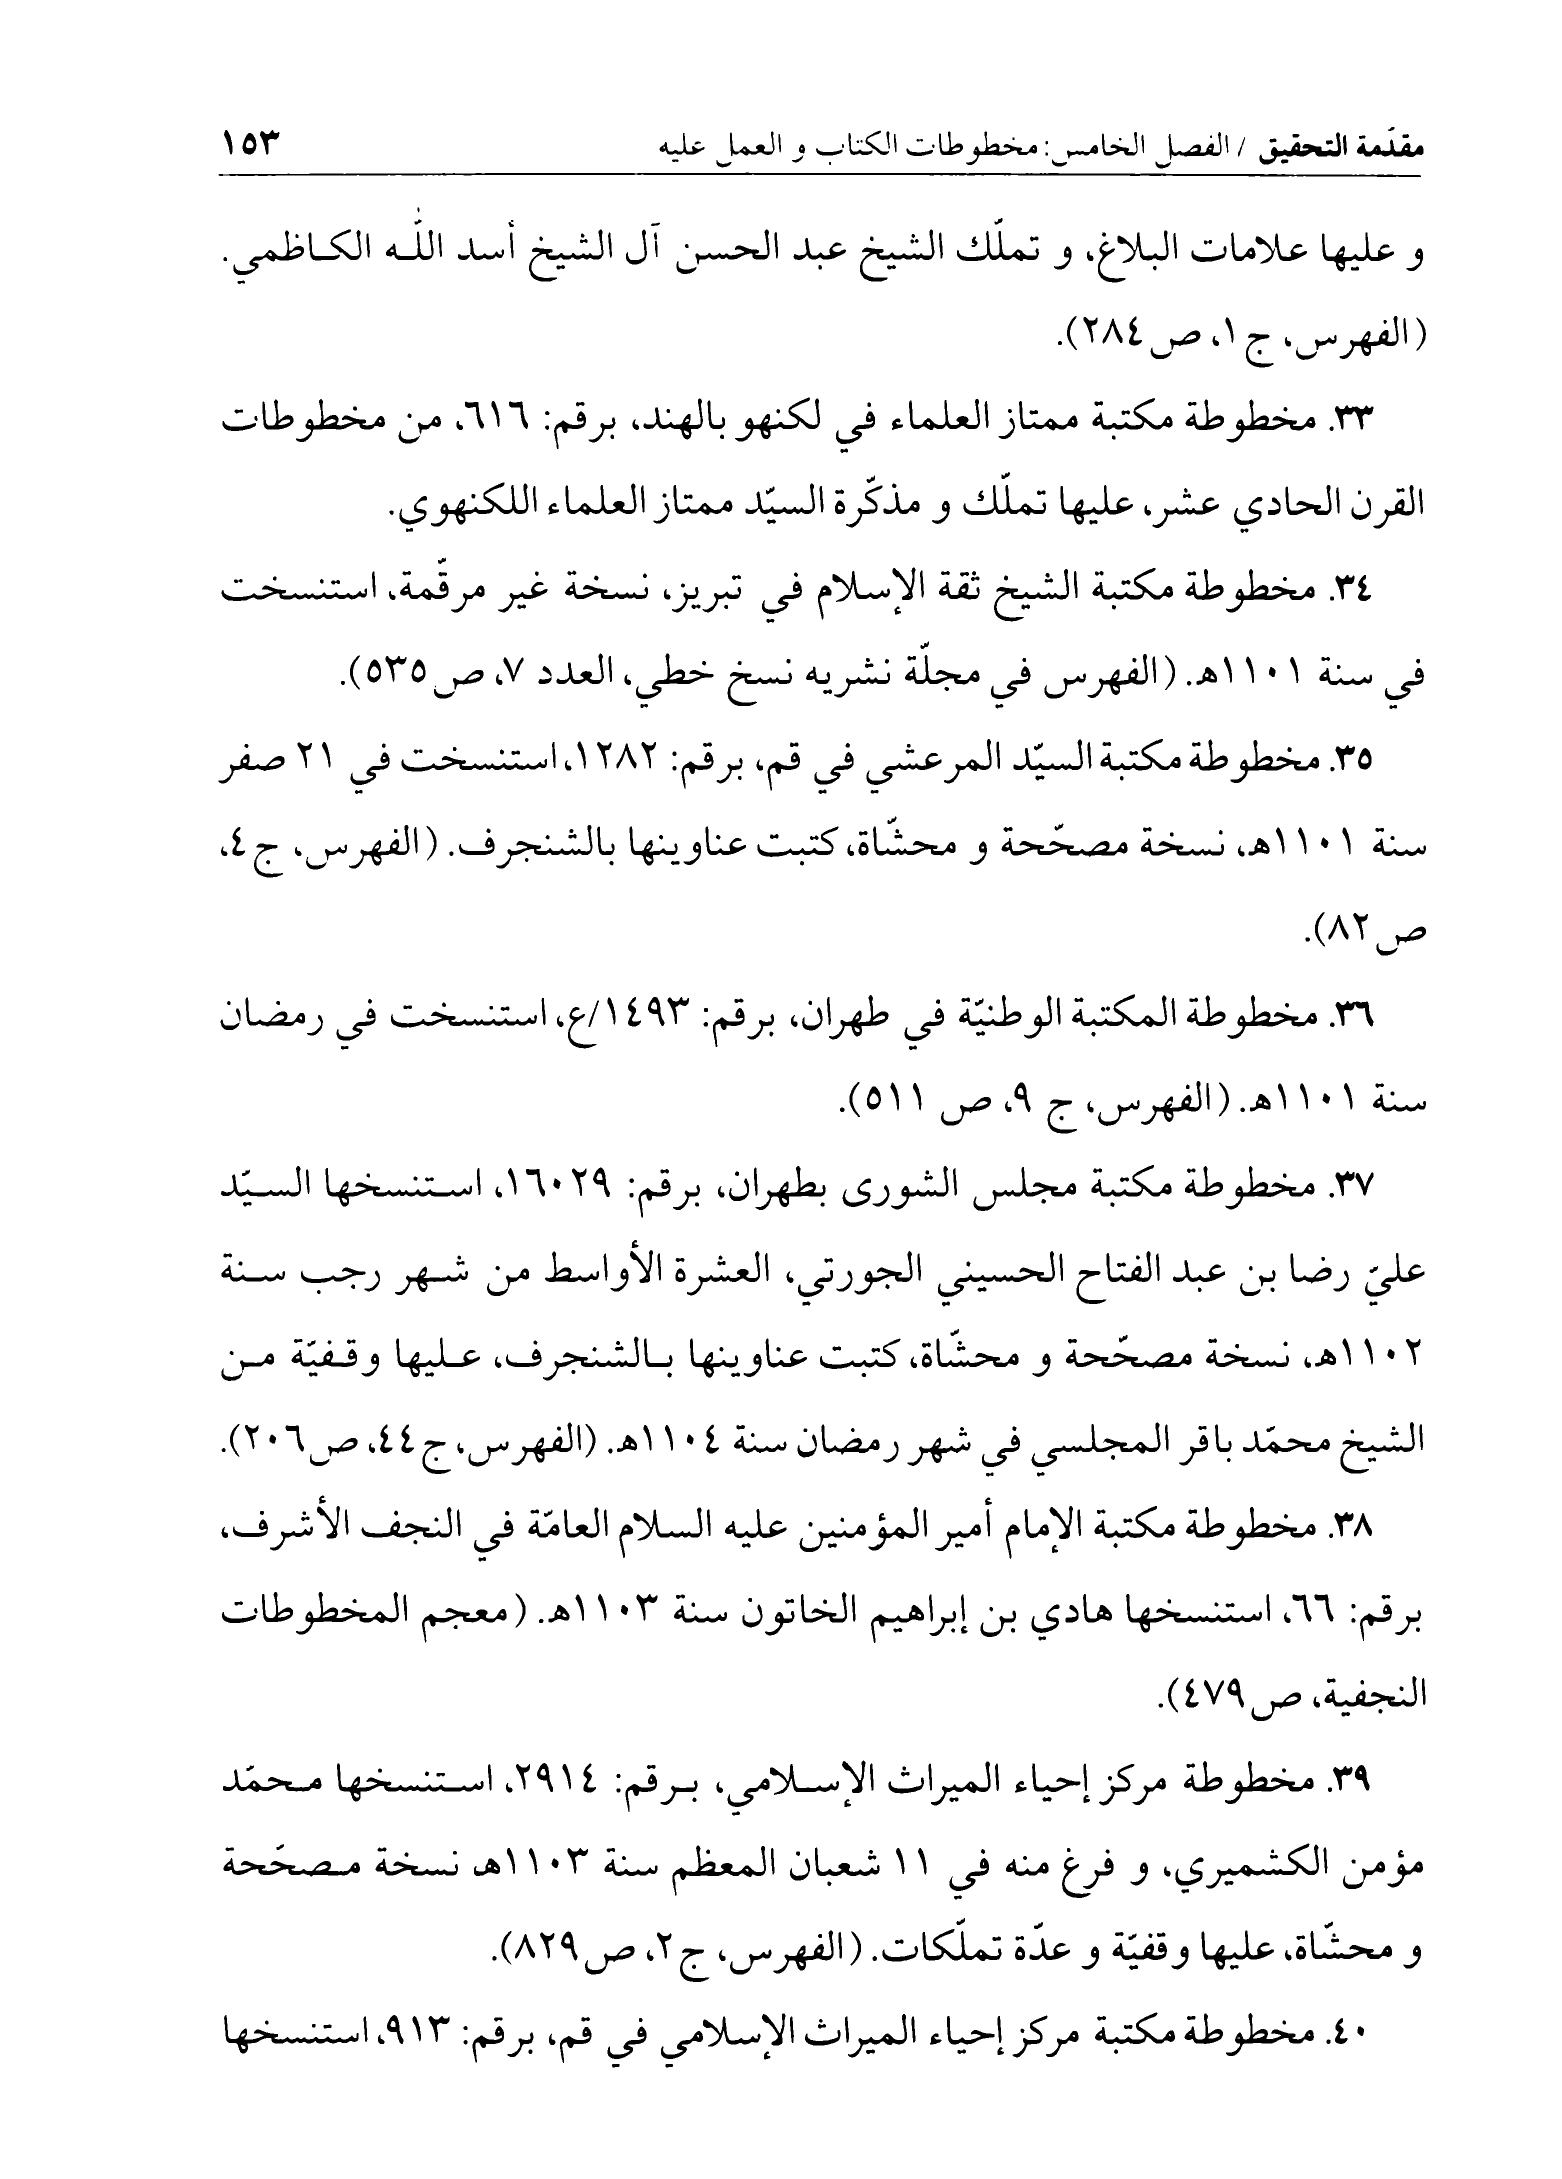 مقدّمة التحقيق / الفصل الخامس: مخطوطات الكتاب و العمل عليه ١٥٣
و عليها علامات البلاغ، و تملّك الشيخ عبد الحسن آل الشيخ أسد اللّٰه الكاظمي.
(الفهرس، ج١، ص٢٨٤).
٣٣. مخطوطة مكتبة ممتاز العلماء في لكنهو بالهند، برقم: ٦١٦، من مخطوطات
القرن الحادي عشر، عليها تملّك و مذكّرة السيّد ممتاز العلماء اللكنهوي.
٣٤. مخطوطة مكتبة الشيخ ثقة الإسلام في تبريز، نسخة غير مرقّمة، استنسخت
في سنة ١١٠١هـ. (الفهرس في مجلّة نشريه نسخ خطي، العدد ٧، ص٥٣٥).
٣٥. مخطوطة مكتبة السيّد المرعشي في قم، برقم: ١٢٨٢، استنسخت في ٢١ صفر
سنة ١١٠١هـ، نسخة مصحّحة و محشّاة، كتبت عناوينها بالشنجرف. (الفهرس، ج٤،
ص٨٢).
٣٦. مخطوطة المكتبة الوطنيّة في طهران، برقم: ١٤٩٣/ع، استنسخت في رمضان
سنة ١١٠١هـ. (الفهرس، ج ٩، ص ٥١١).
٣٧. مخطوطة مكتبة مجلس الشورى بطهران، برقم: ١٦٠٢٩، استنسخها السيّد
عليّ رضا بن عبد الفتاح الحسيني الجورتي، العشرة الأواسط من شهر رجب سنة
١١٠٢هـ، نسخة مصحّحة و محشّاة، كتبت عناوينها بالشنجرف، عليها وقفيّة من
الشيخ محمّد باقر المجلسي في شهر رمضان سنة ١١٠٤هـ. (الفهرس، ج٤٤، ص٢٠٦).
٣٨. مخطوطة مكتبة الإمام أمير المؤمنين عليه السلام العامّة في النجف الأشرف،
برقم: ٦٦، استنسخها هادي بن إبراهيم الخاتون سنة ١١٠٣هـ. (معجم المخطوطات
النجفية، ص٤٧٩).
٣٩. مخطوطة مركز إحياء الميراث الإسلامي، برقم: ٢٩١٤، استنسخها محمّد
مؤمن الكشميري، و فرغ منه في ١١ شعبان المعظم سنة ١١٠٣هـ، نسخة مصحّحة
و محشّاة، عليها وقفيّة و عدّة تملّكات. (الفهرس، ج٢، ص٨٢٩).
٤٠. مخطوطة مكتبة مركز إحياء الميراث الإسلامي في قم، برقم: ٩١٣، استنسخها